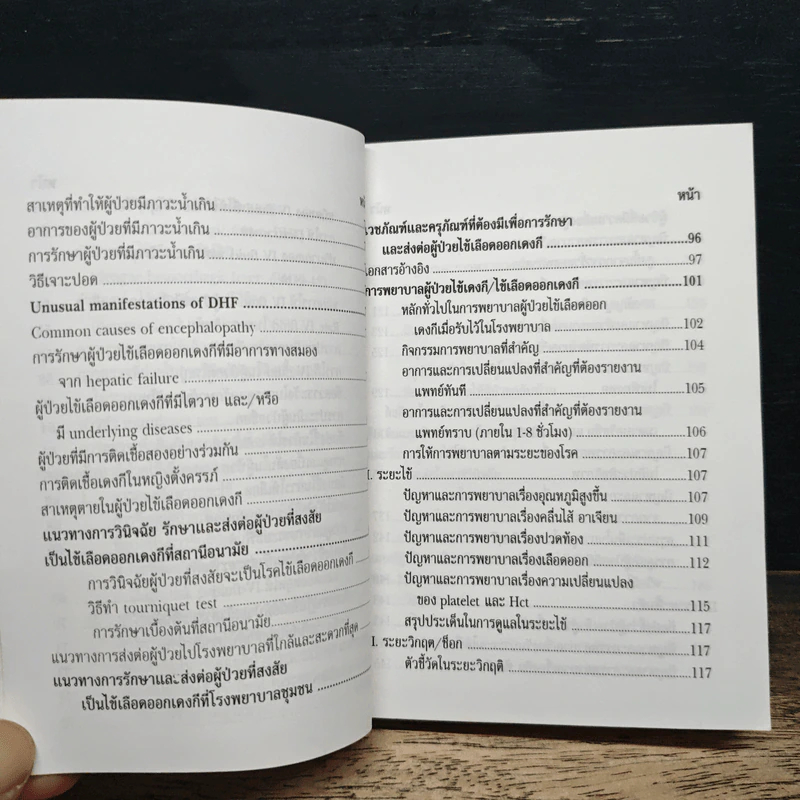 สาเหตุที่ทำให้ผู้ป่วยมีภาวะน้ำเกิน
อาการของผู้ป่วยที่มีภาวะน้ำเกิน
การรักษาผู้ป่วยที่มีภาวะน้ำเกิน
วิธีเจาะปอด
Unusual manifestations of DHF
Common causes of encephalopathy
การรักษาผู้ป่วยไข้เลือดออกเดงกีที่มีอาการทางสมอง
จาก hepatic failure
ผู้ป่วยไข้เลือดออกเดงกีที่มีไตวาย และ/หรือ
มี underlying diseases
ผู้ป่วยที่มีการติดเชื้อสองอย่างร่วมกัน
การติดเชื้อเดงกีในหญิงตั้งครรภ์
สาเหตุตายในผู้ป่วยไข้เลือดออกเดงกี
แนวทางการวินิจฉัย รักษาและส่งต่อผู้ป่วยที่สงสัย
เป็นไข้เลือดออกเดงกีที่สถานีอนามัย
การวินิจฉัยผู้ป่วยที่สงสัยจะเป็นโรคไข้เลือดออกเดงกี
วิธีทำ tourniquet test
การรักษาเบื้องต้นที่สถานีอนามัย
แนวทางการส่งต่อผู้ป่วยไปโรงพยาบาลที่ใกล้และสะดวกที่สุด
แนวทางการรักษาและส่งต่อผู้ป่วยที่สงสัย
เป็นไข้เลือดออกเดงกีที่โรงพยาบาลชุมชน
หน้า
เวชภัณฑ์และครุภัณฑ์ที่ต้องมีเพื่อการรักษา
และส่งต่อผู้ป่วยไข้เลือดออกเดงกี 96
เอกสารอ้างอิง 97
การพยาบาลผู้ป่วยไข้เดงกี/ไข้เลือดออกเดงกี 101
หลักทั่วไปในการพยาบาลผู้ป่วยไข้เลือดออก
เดงกีเมื่อรับไว้ในโรงพยาบาล 102
กิจกรรมการพยาบาลที่สำคัญ 104
อาการและการเปลี่ยนแปลงที่สำคัญที่ต้องรายงาน
แพทย์ทันที 105
อาการและการเปลี่ยนแปลงที่สำคัญที่ต้องรายงาน
แพทย์ทราบ (ภายใน 1-8 ชั่วโมง) 106
การให้การพยาบาลตามระยะของโรค 107
I. ระยะไข้ 107
ปัญหาและการพยาบาลเรื่องอุณหภูมิสูงขึ้น 107
ปัญหาและการพยาบาลเรื่องคลื่นไส้ อาเจียน 109
ปัญหาและการพยาบาลเรื่องปวดท้อง 111
ปัญหาและการพยาบาลเรื่องเลือดออก 112
ปัญหาและการพยาบาลเรื่องความเปลี่ยนแปลง
ของ platelet และ Hct 115
สรุปประเด็นในการดูแลในระยะไข้ 117
I. ระยะวิกฤต/ช็อก 117
ตัวชี้วัดในระยะวิกฤติ 117